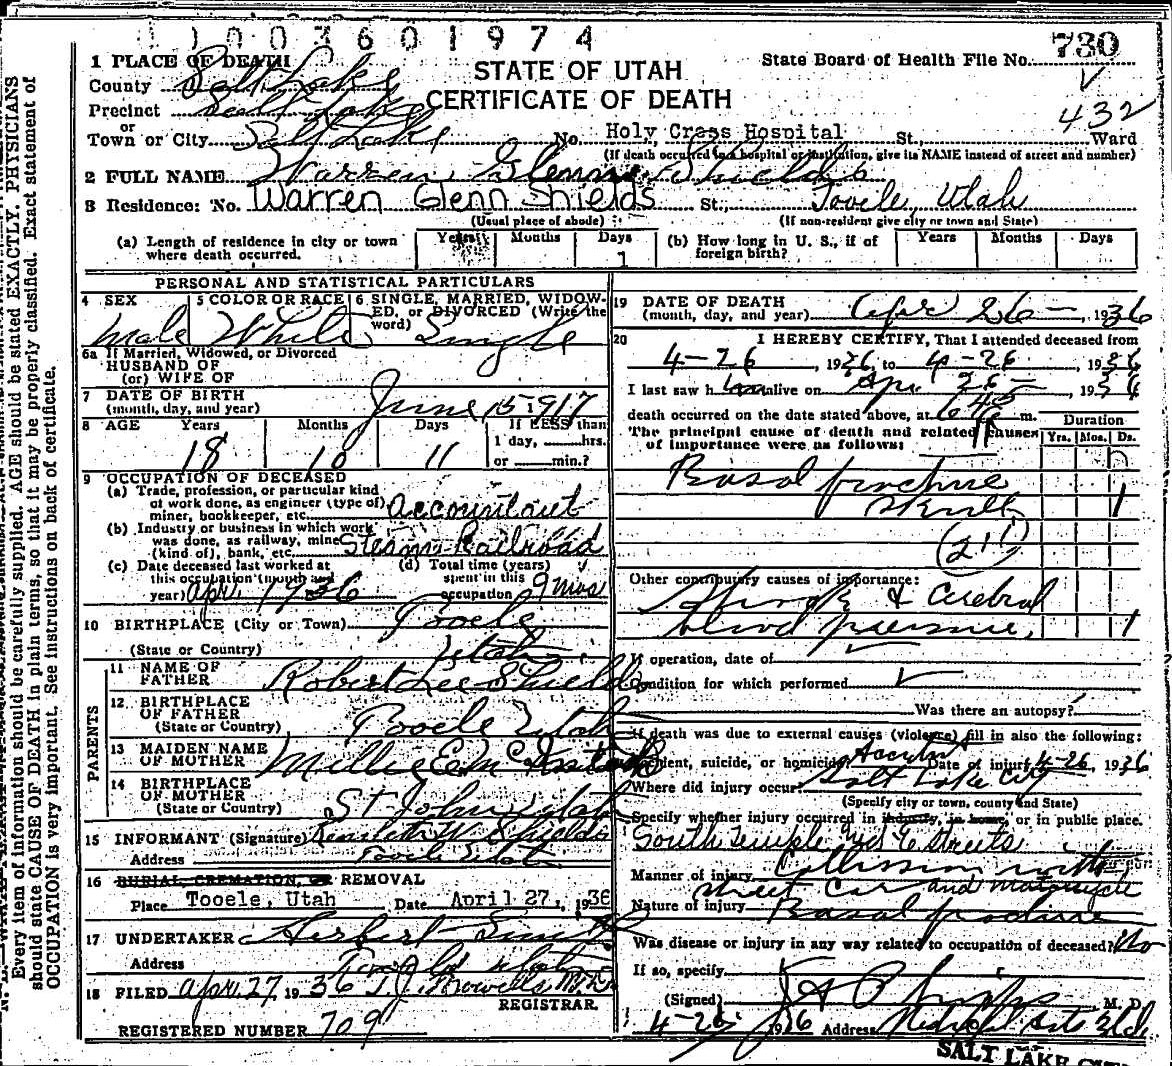 0 1 0 0 3 6 0 1 9 7 4
State Board of Health File No. 730
STATE OF UTAH
CERTIFICATE OF DEATH
432
1 PLACE OF DEATH
County Salt Lake
Precinct Salt Lake
or
Town or City Salt Lake No. Holy Cross Hospital St., Ward
(If death occurred in a hospital or institution, give its NAME instead of street and number)
2 FULL NAME Warren Glenn Shields
3 Residence: No. Warren Glenn Shields St., Tooele, Utah
(Usual place of abode) (If non-resident give city or town and State)
(a) Length of residence in city or town where death occurred. Years Months Days 1
(b) How long in U. S., if of foreign birth? Years Months Days
PERSONAL AND STATISTICAL PARTICULARS
4 SEX Male
5 COLOR OR RACE White
6 SINGLE, MARRIED, WIDOWED, OR DIVORCED (Write the word) Single
6a If Married, Widowed, or Divorced
HUSBAND OF
(or) WIFE OF
7 DATE OF BIRTH
(month, day, and year) June 15 1917
8 AGE Years Months Days If LESS than
1 day, hrs.
or min.?
18 10 11
9 OCCUPATION OF DECEASED
(a) Trade, profession, or particular kind
of work done, as engineer (type of)
miner, bookkeeper, etc. Accountant
(b) Industry or business in which work
was done, as railway, mine
(kind of), bank, etc. Steam Railroad
(c) Date deceased last worked at
this occupation (month and
year) Apr. 1936
(d) Total time (years)
spent in this
occupation 9 mos
10 BIRTHPLACE (City or Town) Tooele
(State or Country) Utah
PARENTS
11 NAME OF
FATHER Robert Lee Shields
12 BIRTHPLACE
OF FATHER
(State or Country) Tooele Utah
13 MAIDEN NAME
OF MOTHER Millie E. Mc
14 BIRTHPLACE
OF MOTHER
(State or Country) St. John Utah
15 INFORMANT (Signature) W. Shields
Address Tooele Utah
16 BURIAL, CREMATION, OR REMOVAL
Place Tooele, Utah Date April 27, 1936
17 UNDERTAKER Herbert
Address Utah
18 FILED Apr. 27 1936 T. J. Howells M.D.
REGISTRAR.
REGISTERED NUMBER 709
19 DATE OF DEATH
(month, day, and year) Apr 26 , 1936
20 I HEREBY CERTIFY, That I attended deceased from
4-26 , 1936, to 4-26 , 1936
I last saw h im alive on Apr 26 , 1936
death occurred on the date stated above, at 6 45 P m.
The principal cause of death and related causes
of importance were as follows:
Duration
Yrs. Mos. Ds.
Basal fracture
skull 1
(211)
Other contributory causes of importance:
Shock & Cerebral
blood pressure, 1
If operation, date of
Condition for which performed
Was there an autopsy?
If death was due to external causes (violence) fill in also the following:
Accident, suicide, or homicide Accident Date of injury 4-26, 1936
Where did injury occur? Salt Lake City
(Specify city or town, county and State)
Specify whether injury occurred in industry, in home, or in public place.
South Temple and E Streets
Manner of injury Collission with
street car and motorcycle
Nature of injury Basal fracture
Was disease or injury in any way related to occupation of deceased? No
If so, specify
(Signed) M. D.
4-26 1936 Address
SALT LAKE CITY
Every item of information should be carefully supplied. AGE should be stated EXACTLY. PHYSICIANS
should state CAUSE OF DEATH in plain terms, so that it may be properly classified. Exact statement of
OCCUPATION is very important. See instructions on back of certificate.